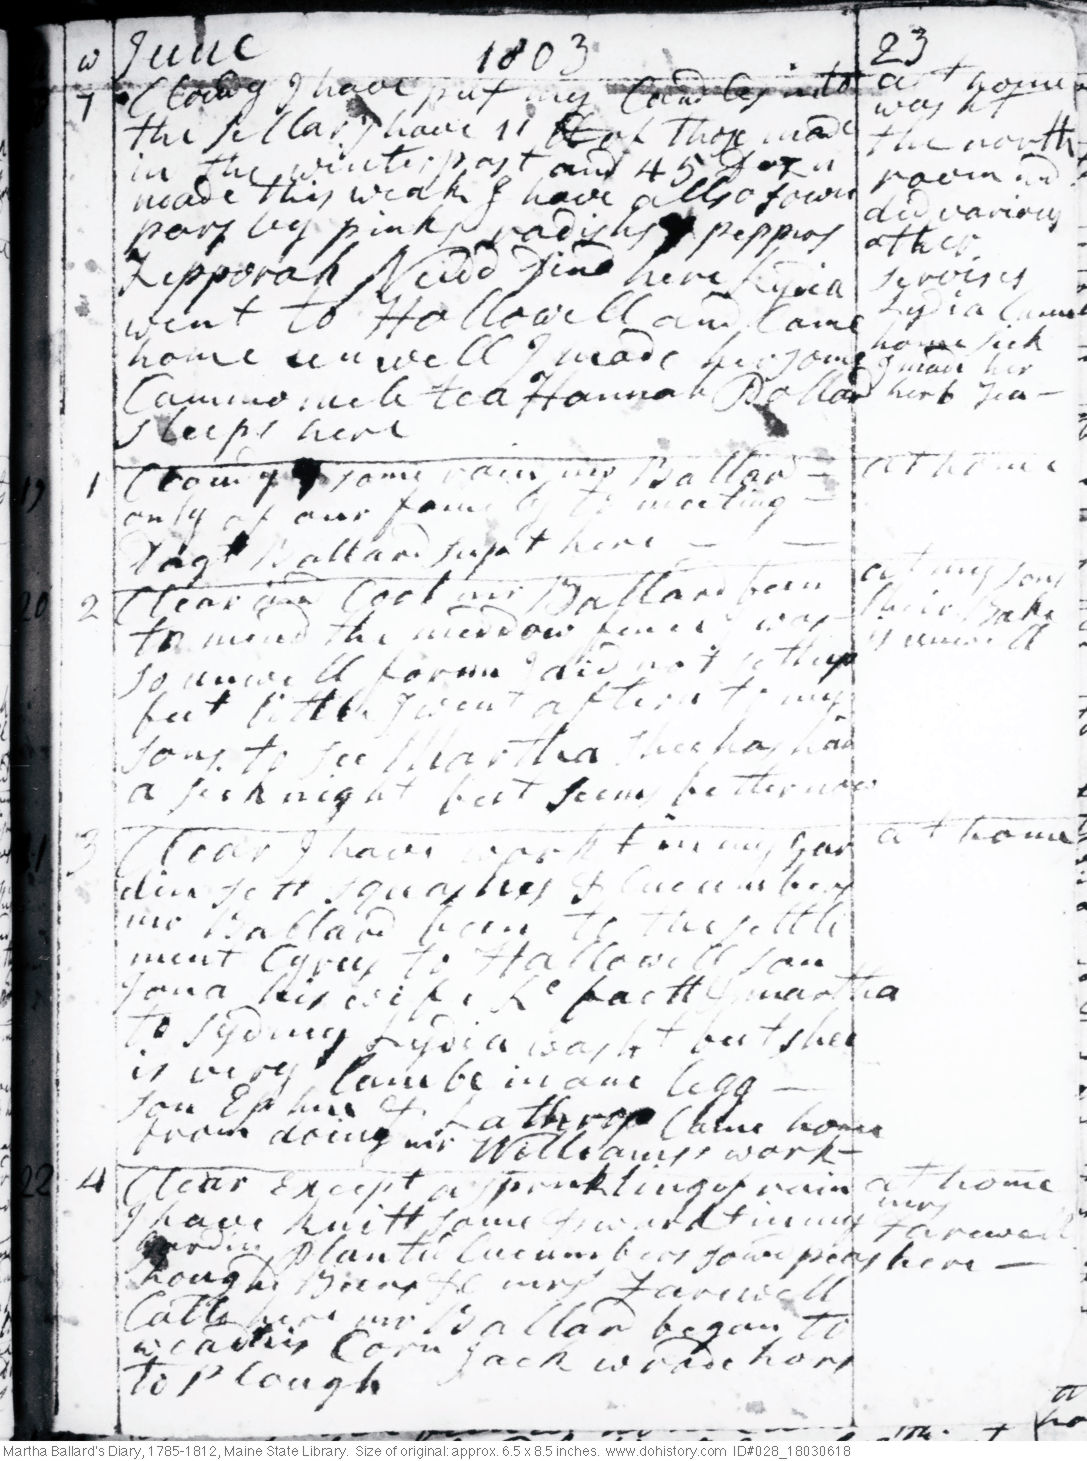 w June 1803 23
7 Cloudy I have put my Candles into
the sellar I have 11 of those made
in the winter past and 45 Dozn
made this weak I have allso sown
pinks radishs & peppers
Zepporah here Lydia
went to Hallowell and Came
home unwell I made her some
Cammomele tea Hannah Ballard
sleeps here
at home
washt
the north
room and
did varioys
other
servises
Lydia Came
home sick
I made her
herb Tea –
19 1 Cloudy & some rain mr Ballard –
only of our family to meeting –
Ballard supt here – –
at home
20 2 Clear and Cool mr Ballard been
to mend the meddow fence I was
so unwell fornn I did not set up
but little I went aftern to my
sons to see Martha shee has had
a sick night but seems better now
at my sons
their Babe
is unwell
21 3 Clear I have workt in my gar
din sett squashes & Cucumbers
mr Ballard been to the settle
ment Cyrus to Hallowell son
Jona his wife Lafaett & martha
to Sydney Lydia washt but shee
is very lambe in one legg –
son Ephm & Lathrop Came home
from doing mr Williamss work –
at home
22 4 Clear Except a sprinkling of rain
I have knitt some & workt in my
gardin Planted Cucumbers sowd peas
Beens &c mrs Farewell
Calld here mr Ballard began to
wead his Corn Jack wrode hors
to Plough
at home
mrs
Farewell
here –
Martha Ballard's Diary, 1785-1812, Maine State Library. Size of original: approx. 6.5 x 8.5 inches. www.dohistory.com ID#028_18030618